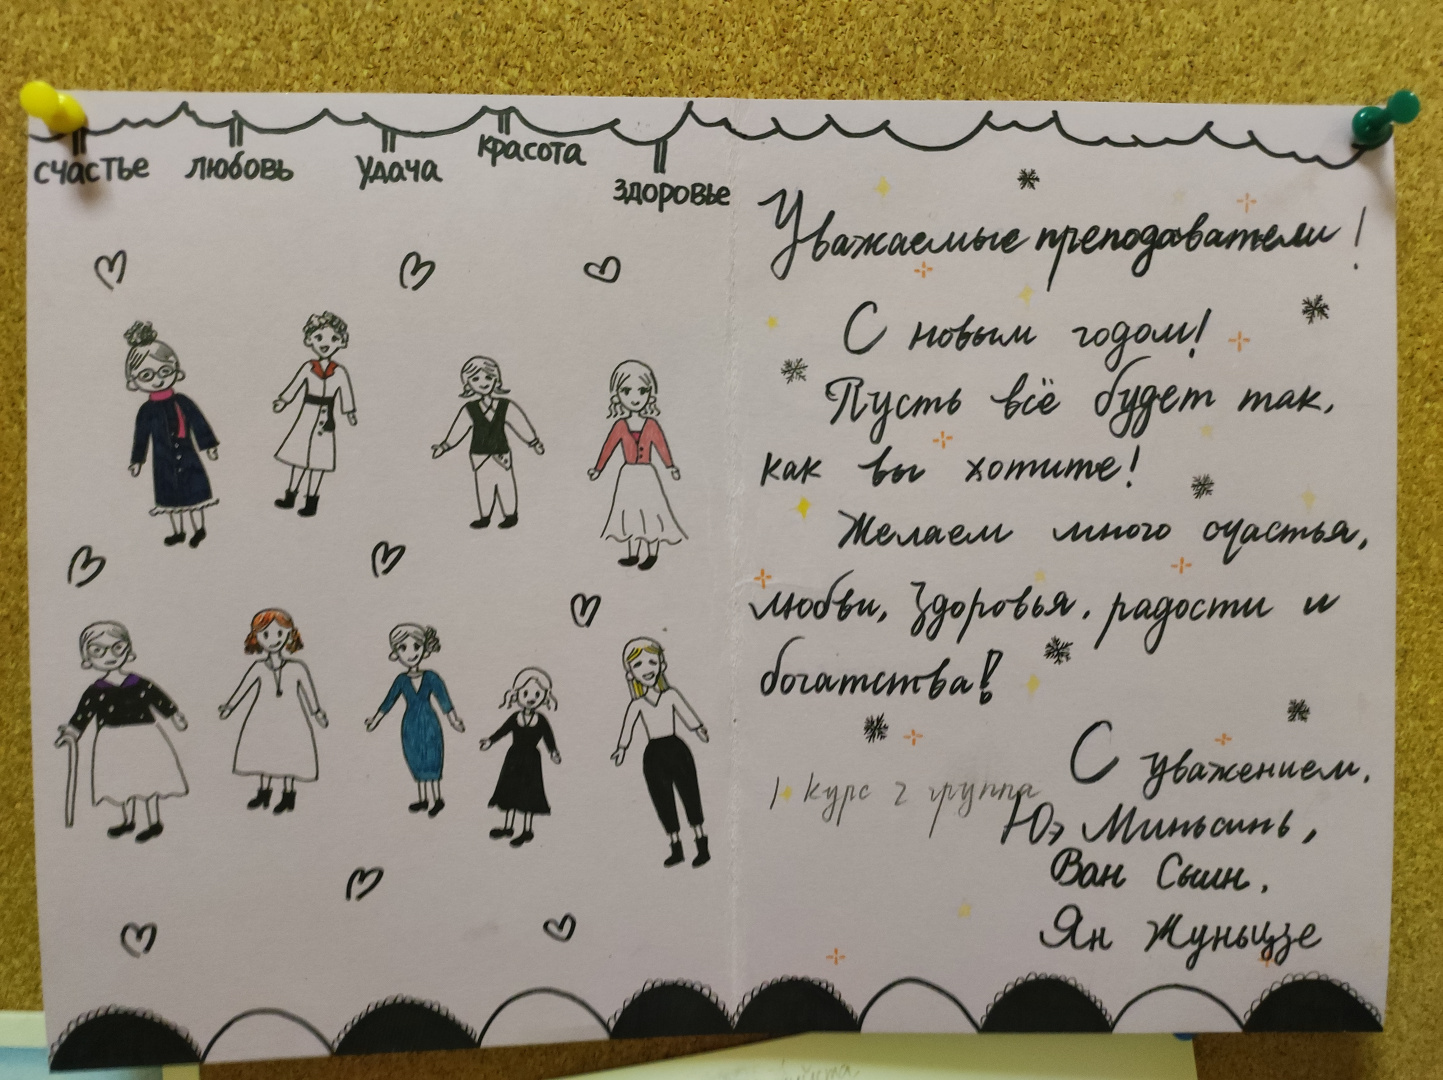 счастье
любовь
удача
красота
здоровье
Уважаемые преподаватели!
С новым годом!
Пусть всё будет так,
как вы хотите!
Желаем много счастья,
любви, здоровья, радости и
богатства!
С уважением,
1 курс 2 группа
Юэ Миньсинь,
Ван Сыин,
Ян Жуньцзе